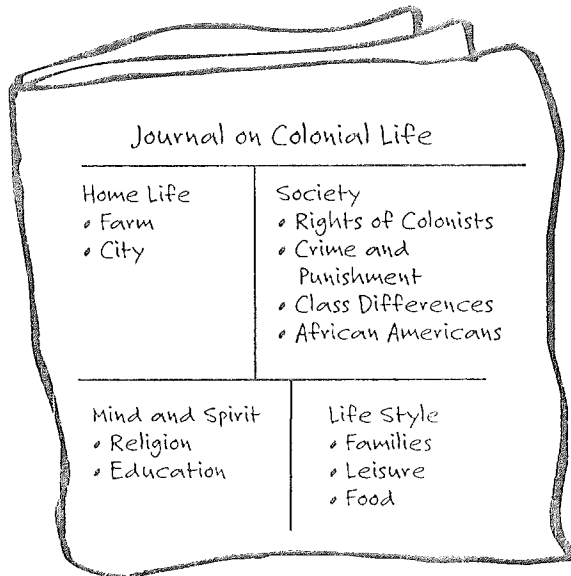 Journal on Colonial Life
Home Life
• Farm
• City
Society
• Rights of Colonists
• Crime and
Punishment
• Class Differences
• African Americans
Mind and Spirit
• Religion
• Education
Life Style
• Families
• Leisure
• Food